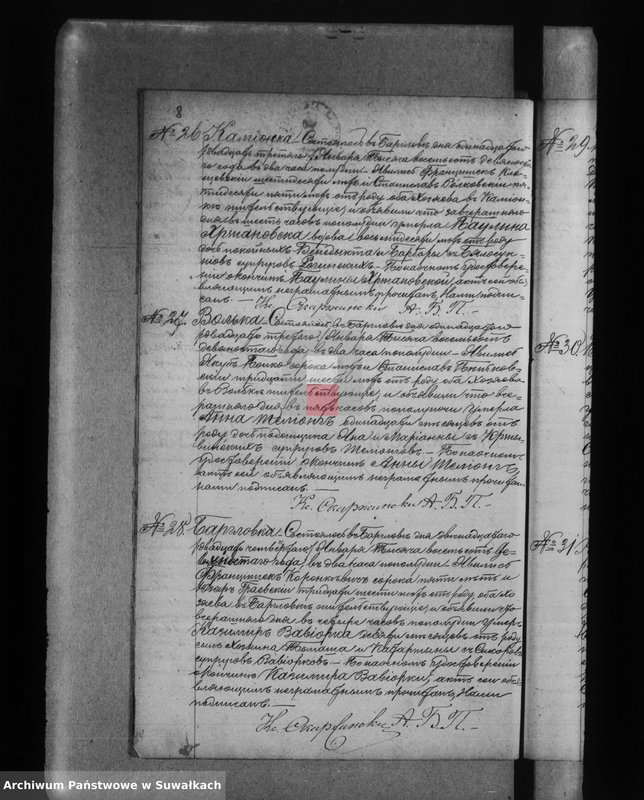 8
№ 26 Каміонка. Состоялось въ Барглове дня одинадцатаго
/двадцать третяго/ Января тысяча восемьсотъ девяно-
стаго года въ два часа пополудни. Явились Францишекъ
шестидесяти лѣтъ и Станиславъ пя-
тидесяти пяти лѣтъ отъ роду оба Хозяева въ Каміон-
кѣ жительствующіе, и объявили что завчерашняго
дня въ шесть часовъ пополудни умерла Паулина
Хржановска вдова восемьдесяти лѣтъ отъ роду
дочь покойныхъ Бенедыкта и Барбары
супруговъ По наочномъ удостовере-
ніи окончины Паулины Хржановской, актъ сей объ-
являющимъ неграмотнымъ прочитанъ, Нами подпи-
санъ. —
Кс. Скаржински А. Б. П. —
№ 27 Волька. Состоялось въ Барглове дня одинадцатаго
/двадцать третяго/ Января тысяча восемьсотъ
девяностаго года, въ два часа пополудни. — Явились
Якубъ сорока лѣтъ и Станиславъ
тридцати шести лѣтъ отъ роду оба Хозяева
въ Волькѣ жительствующіе, и объявили что вче-
рашняго дня въ пять часовъ пополуночи умерла
Анна одинадцати мѣсяцевъ отъ
роду дочь Яна и Маріанны съ Кржи-
винскихъ супруговъ По наочномъ
удостовереніи окончины Анны
актъ сей объявляющимъ неграмотнымъ прочитанъ
нами подписанъ. —
Кс. Скаржински А. Б. П. —
№ 28 Баргловка. Состоялось въ Барглове дня двенадцатаго
/двадцать четвертаго/ Января тысяча восемьсотъ де-
вяностаго года, въ два часа пополудни. Явились
Францишекъ Коронкевичъ сорока пяти лѣтъ и
Граевски тридцати шести лѣтъ отъ роду, оба Хо-
зяева въ Баргловкѣ жительствующіе, и объявили что
вчерашняго дня въ четыре часовъ пополудни умеръ
Казимиръ Вавіорка девяти мѣсяцевъ отъ роду
сынъ Хозяина Томаша и Катаржины съ Сикоровъ
супруговъ Вавіорковъ — По наочномъ удостовереніи
окончины Казимира Вавіорки, актъ сей объя-
вляющимъ неграмотнымъ прочитанъ, Нами
подписанъ. —
Кс. Скаржински А. Б. П. —
№ 29
№ 30
№ 31
Archiwum Państwowe w Suwałkach